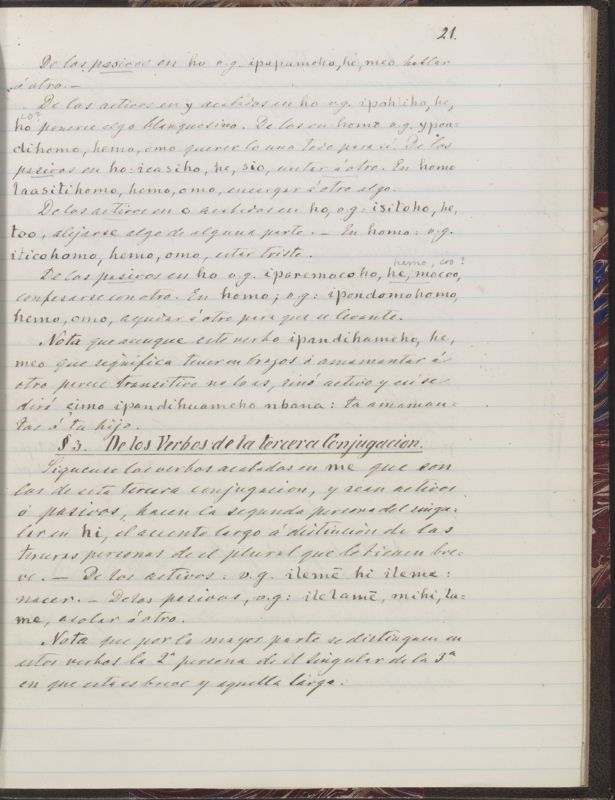 21.
De los pasivos en ho v.g. ipapamcho, he, meo hablar
á otro.—
De los activos en y acabados en ho v.g. ipohiho, he,
co?
ho ponerse algo blanquesino. De los en homo v.g. ypon=
dihomo, hemo, omo querer lo uno todo para si. De los
pasivos en ho: icasiho, he, sio, untar á otro. En homo
taasitihomo, hemo, omo, encargar á otro algo.
De los activos en o acabados en ho, v.g: isitoho, he,
too, alejarse algo de alguna parte.— En homo: v.g.
iticohomo, hemo, omo, estar triste.
hemo, coo?
De los pasivos en ho v.g. iporemocoho, he, mocoo,
confesarse con otro. En homo; v.g: ipondomohomo,
hemo, omo, ayudar á otro para que se levante.
Nota que aunque este verbo ipandihameho, he,
meo que significa tener en brazos ó amamantar á
otro parece transitivo no lo es, sinó activo y asi se
dirá cimo ipandihuameho nbana: ta amaman=
tas á tu hijo.
§ 3. De los Verbos de la tercera Conjugacion.
Siguense los verbos acabados en me que son
los de esta tercera conjugacion, y sean activos
ó pasivos, hacen la segunda persona del singu=
lar en hi, el acento largo á distincion de las
terceras personas de el plural que lo tienen bre=
ve.— De los activos: v.g. ilemē hi ileme:
nacer.— De los pasivos, v.g: ilelamē, mihi, la=
me, asolar á otro.
Nota que por la mayor parte se distinguen en
estos verbos la 2ª persona de el singular de la 3ª
en que esta es breve y aquella larga.